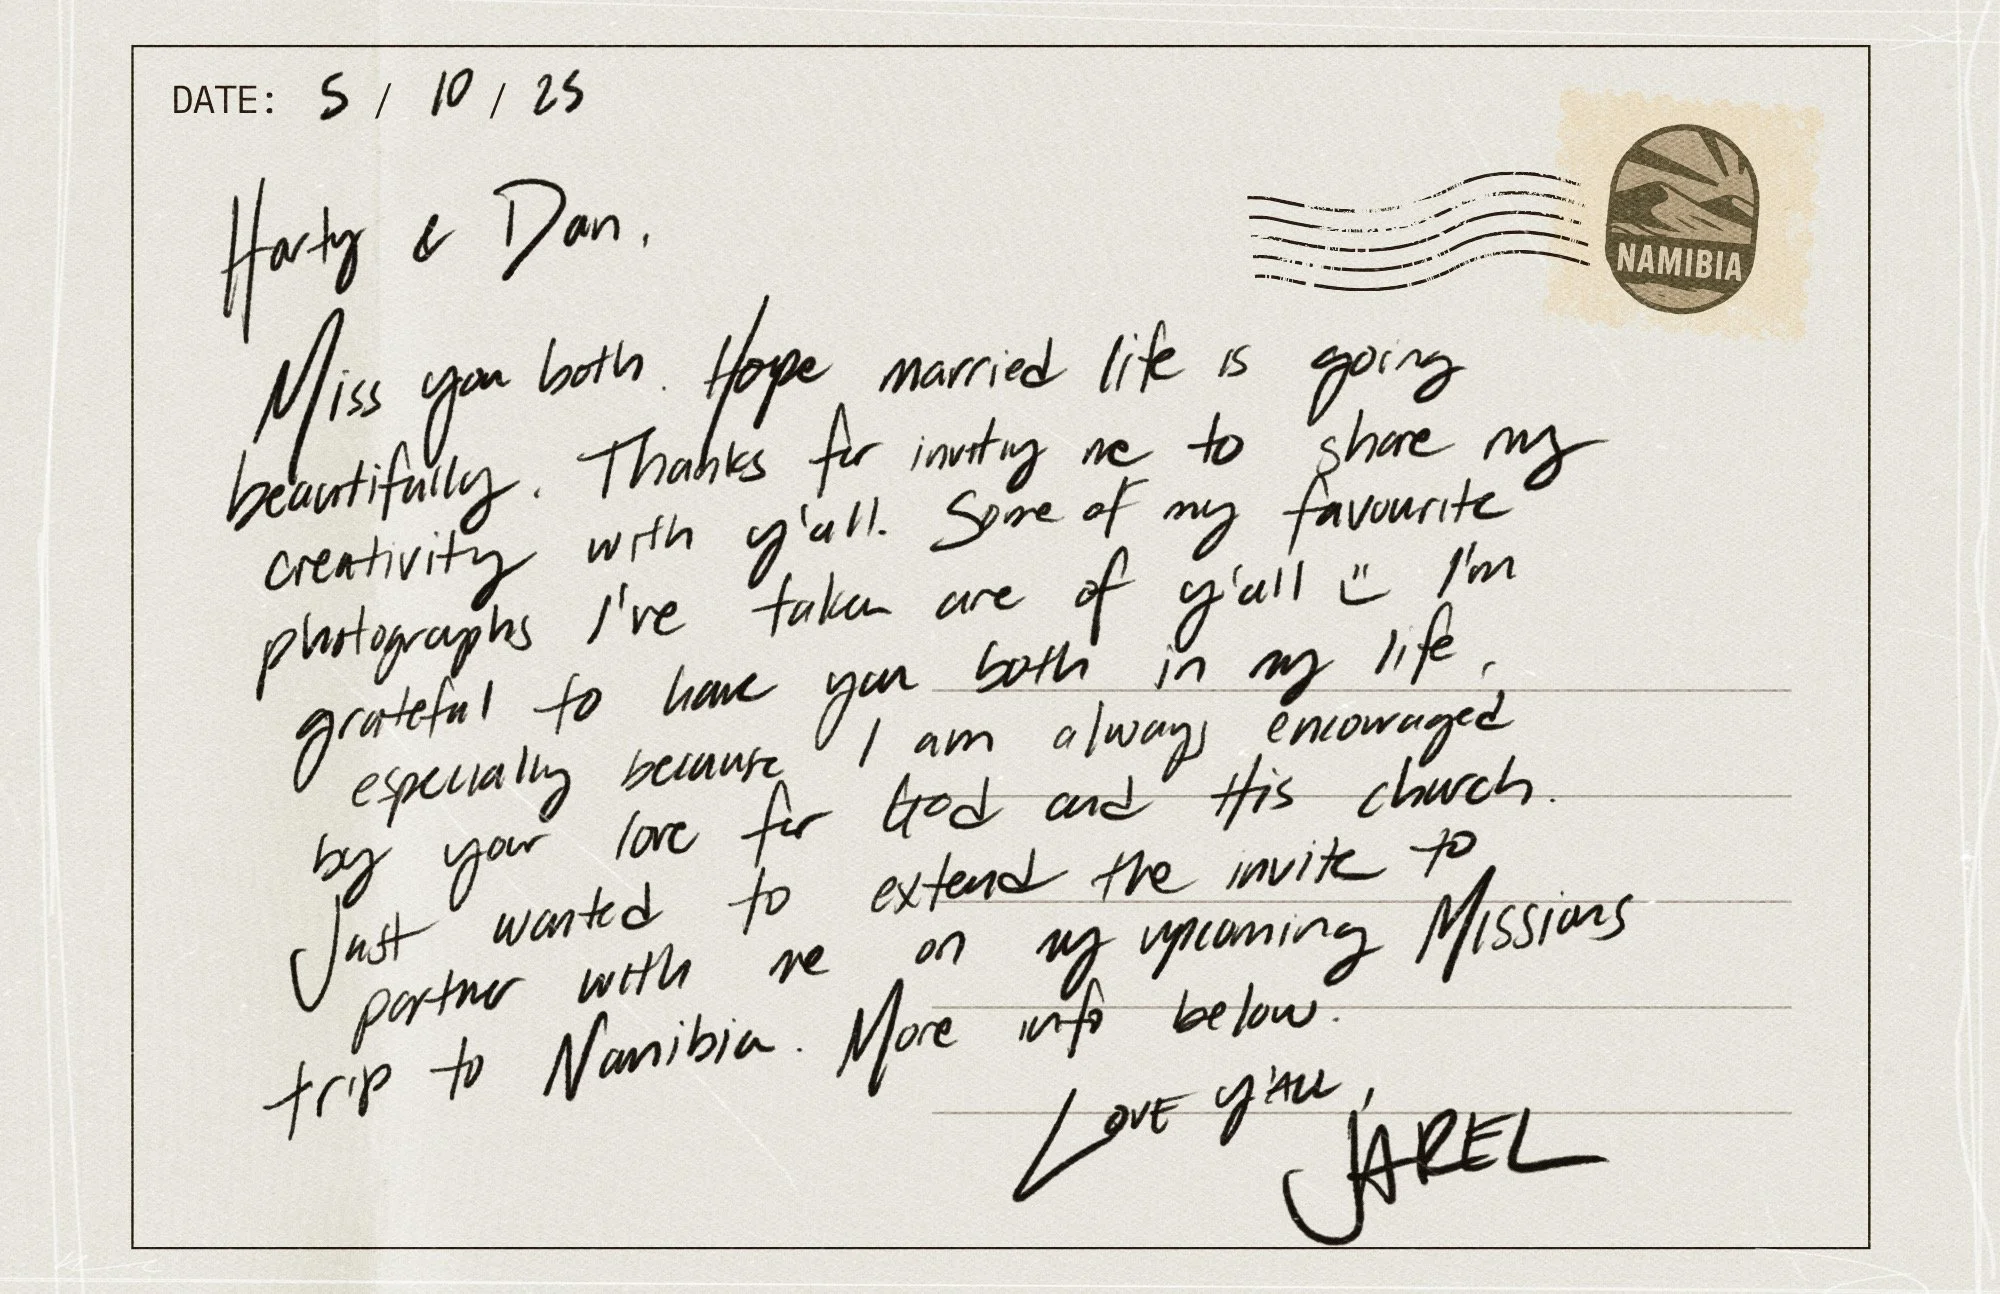 DATE: 5 / 10 / 25
NAMIBIA
Harty & Dan,
Miss you both. Hope married life is going
beautifully. Thanks for inviting me to share my
creativity with y'all. Some of my favourite
photographs I've taken are of y'all :) I'm
grateful to have you both in my life,
especially because I am always encouraged
by your love for God and His church.
Just wanted to extend the invite to
partner with me on my upcoming Missions
trip to Namibia. More info below.
LOVE Y'ALL,
JAREL